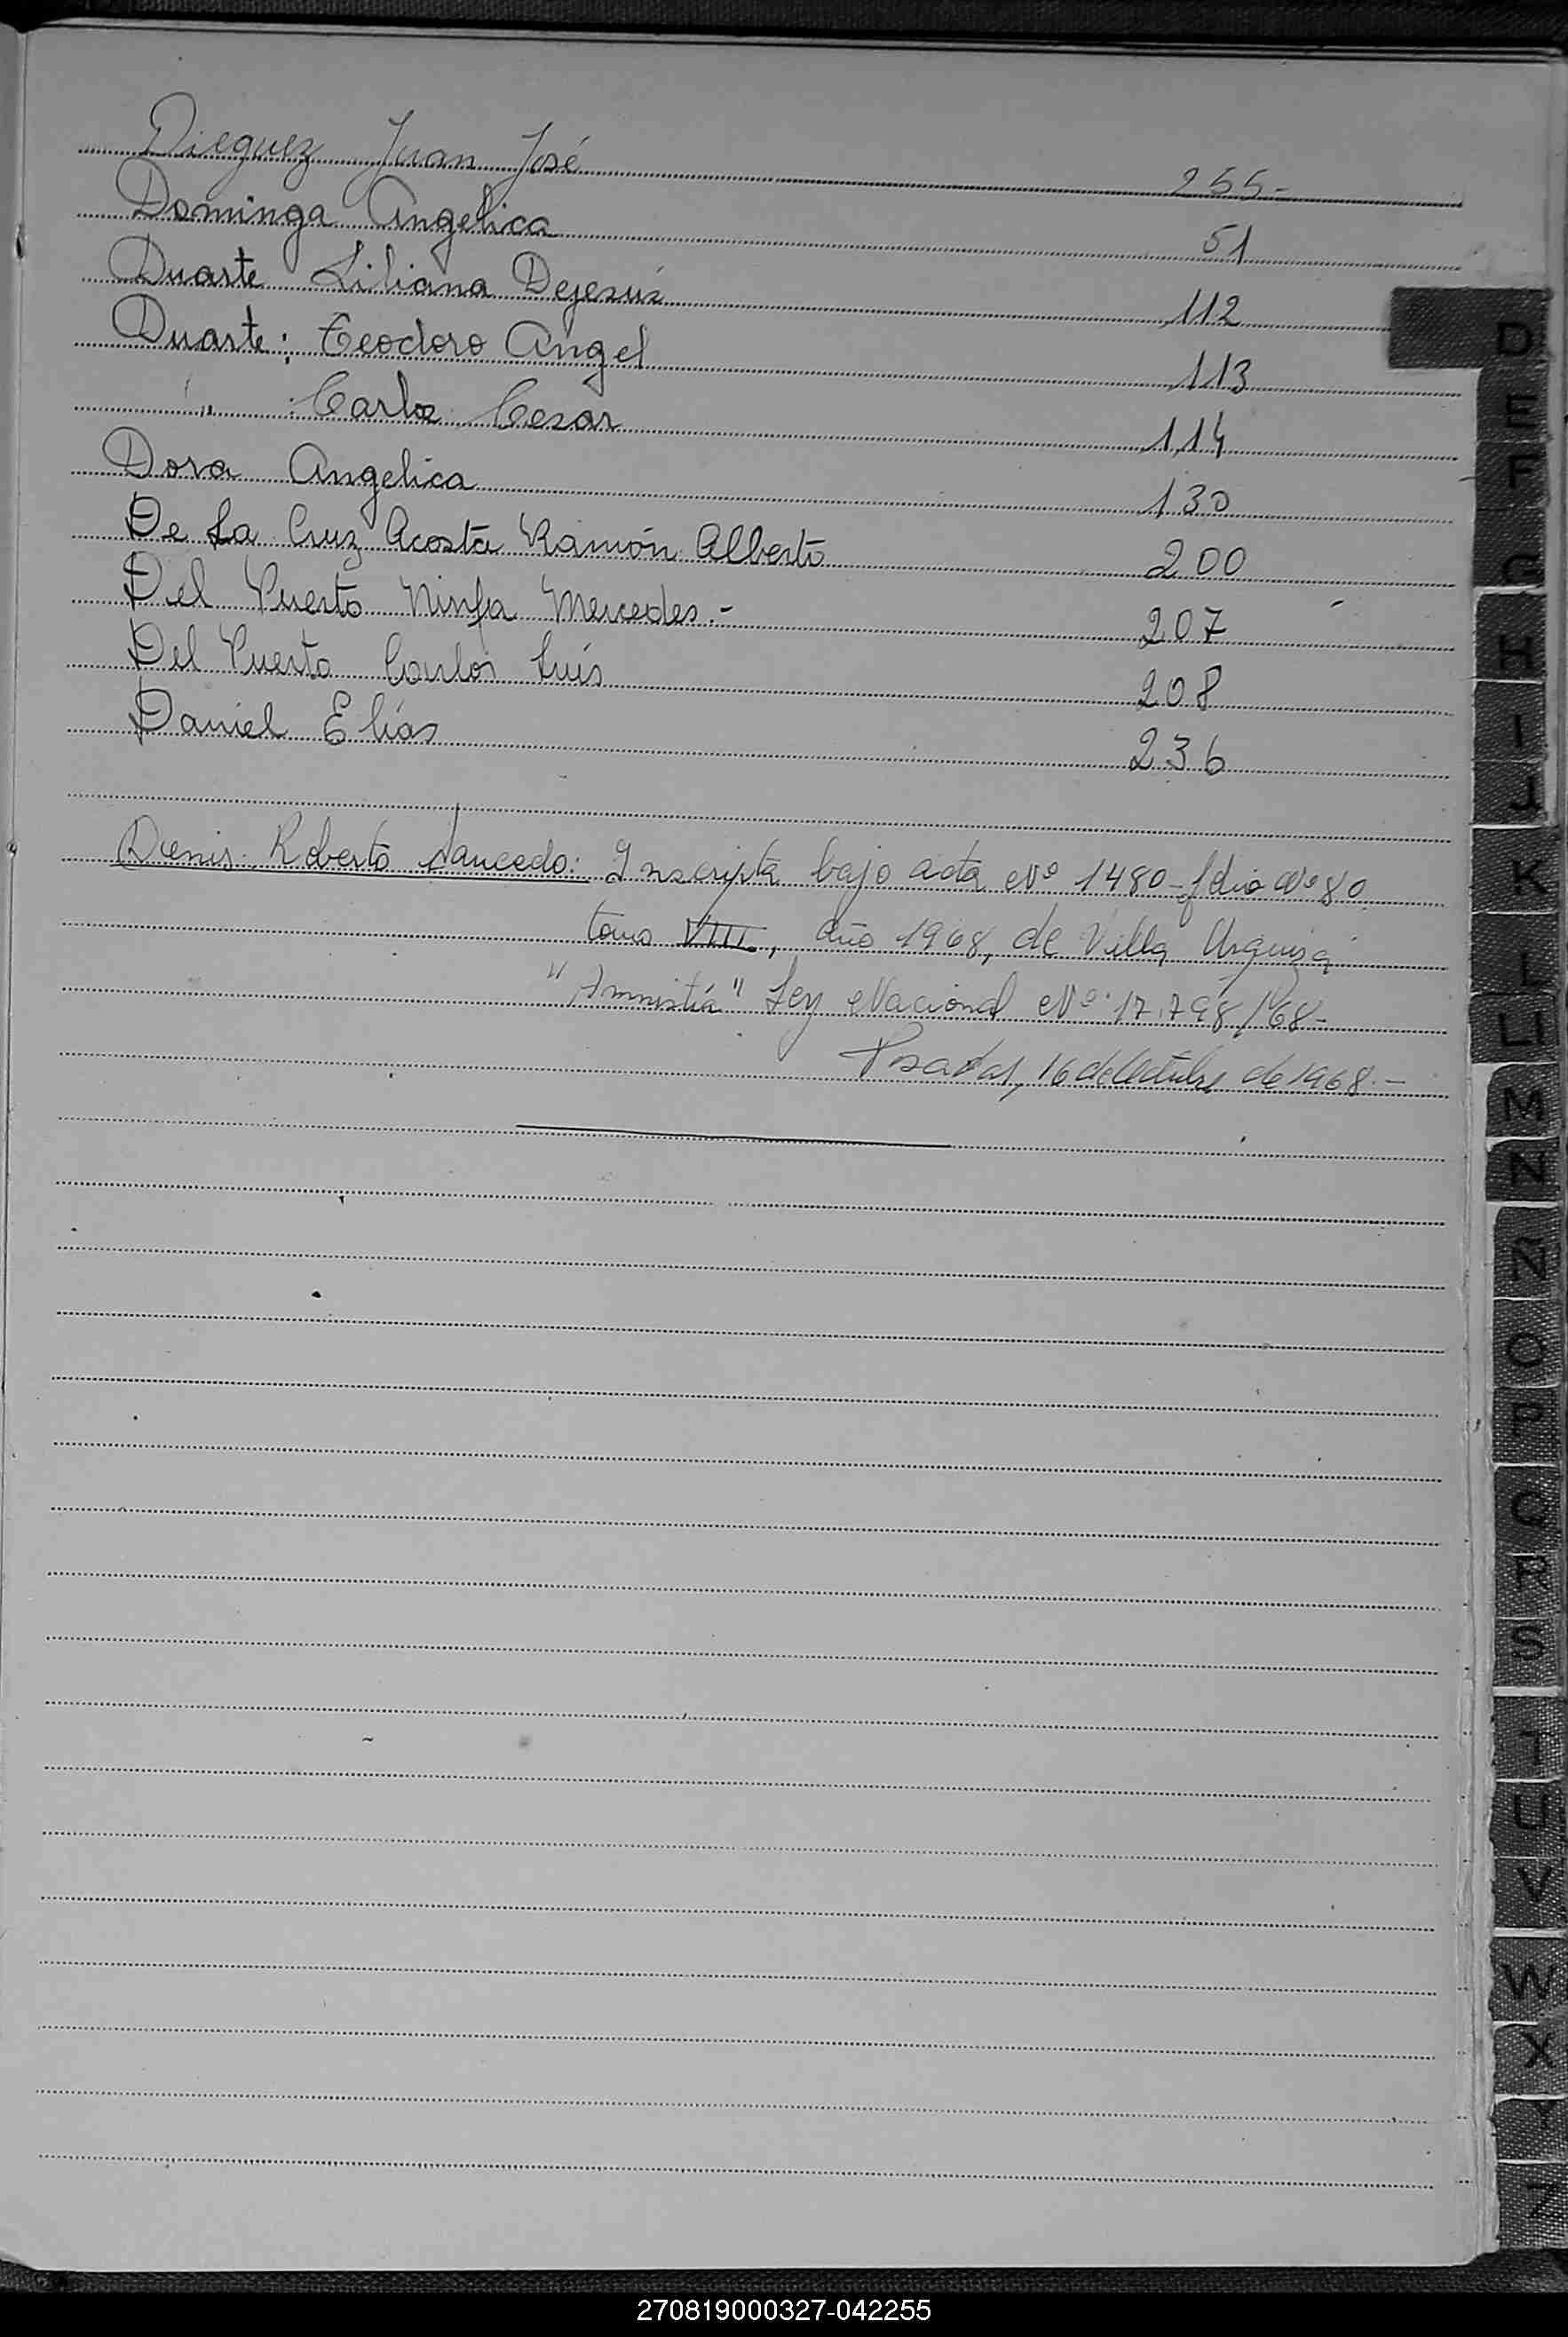 Dieguez Juan José 255-
Dominga Angelica 51
Duarte Liliana Dejesús 112
Duarte: Teodoro Angel 113
" Carlos Cesar 114
Dora Angelica 130
De La Cruz Acosta Ramón Alberto 200
Del Puerto Ninfa Mercedes.- 207
Del Puerto Carlos Luis 208
Daniel Elías 236
Denis Roberto Saucedo: Inscripta bajo acta Nº 1480-folio Nº 80
tomo VIII, año 1968, de Villa Urquiza
"Amnistía" Ley Nacional Nº 17.798/68-
Posadas, 16 de Octubre de 1968.-
D
E
F
G
H
I
J
K
L
LL
M
N
Ñ
O
P
Q
R
S
T
U
V
W
X
Y
Z
270819000327-042255